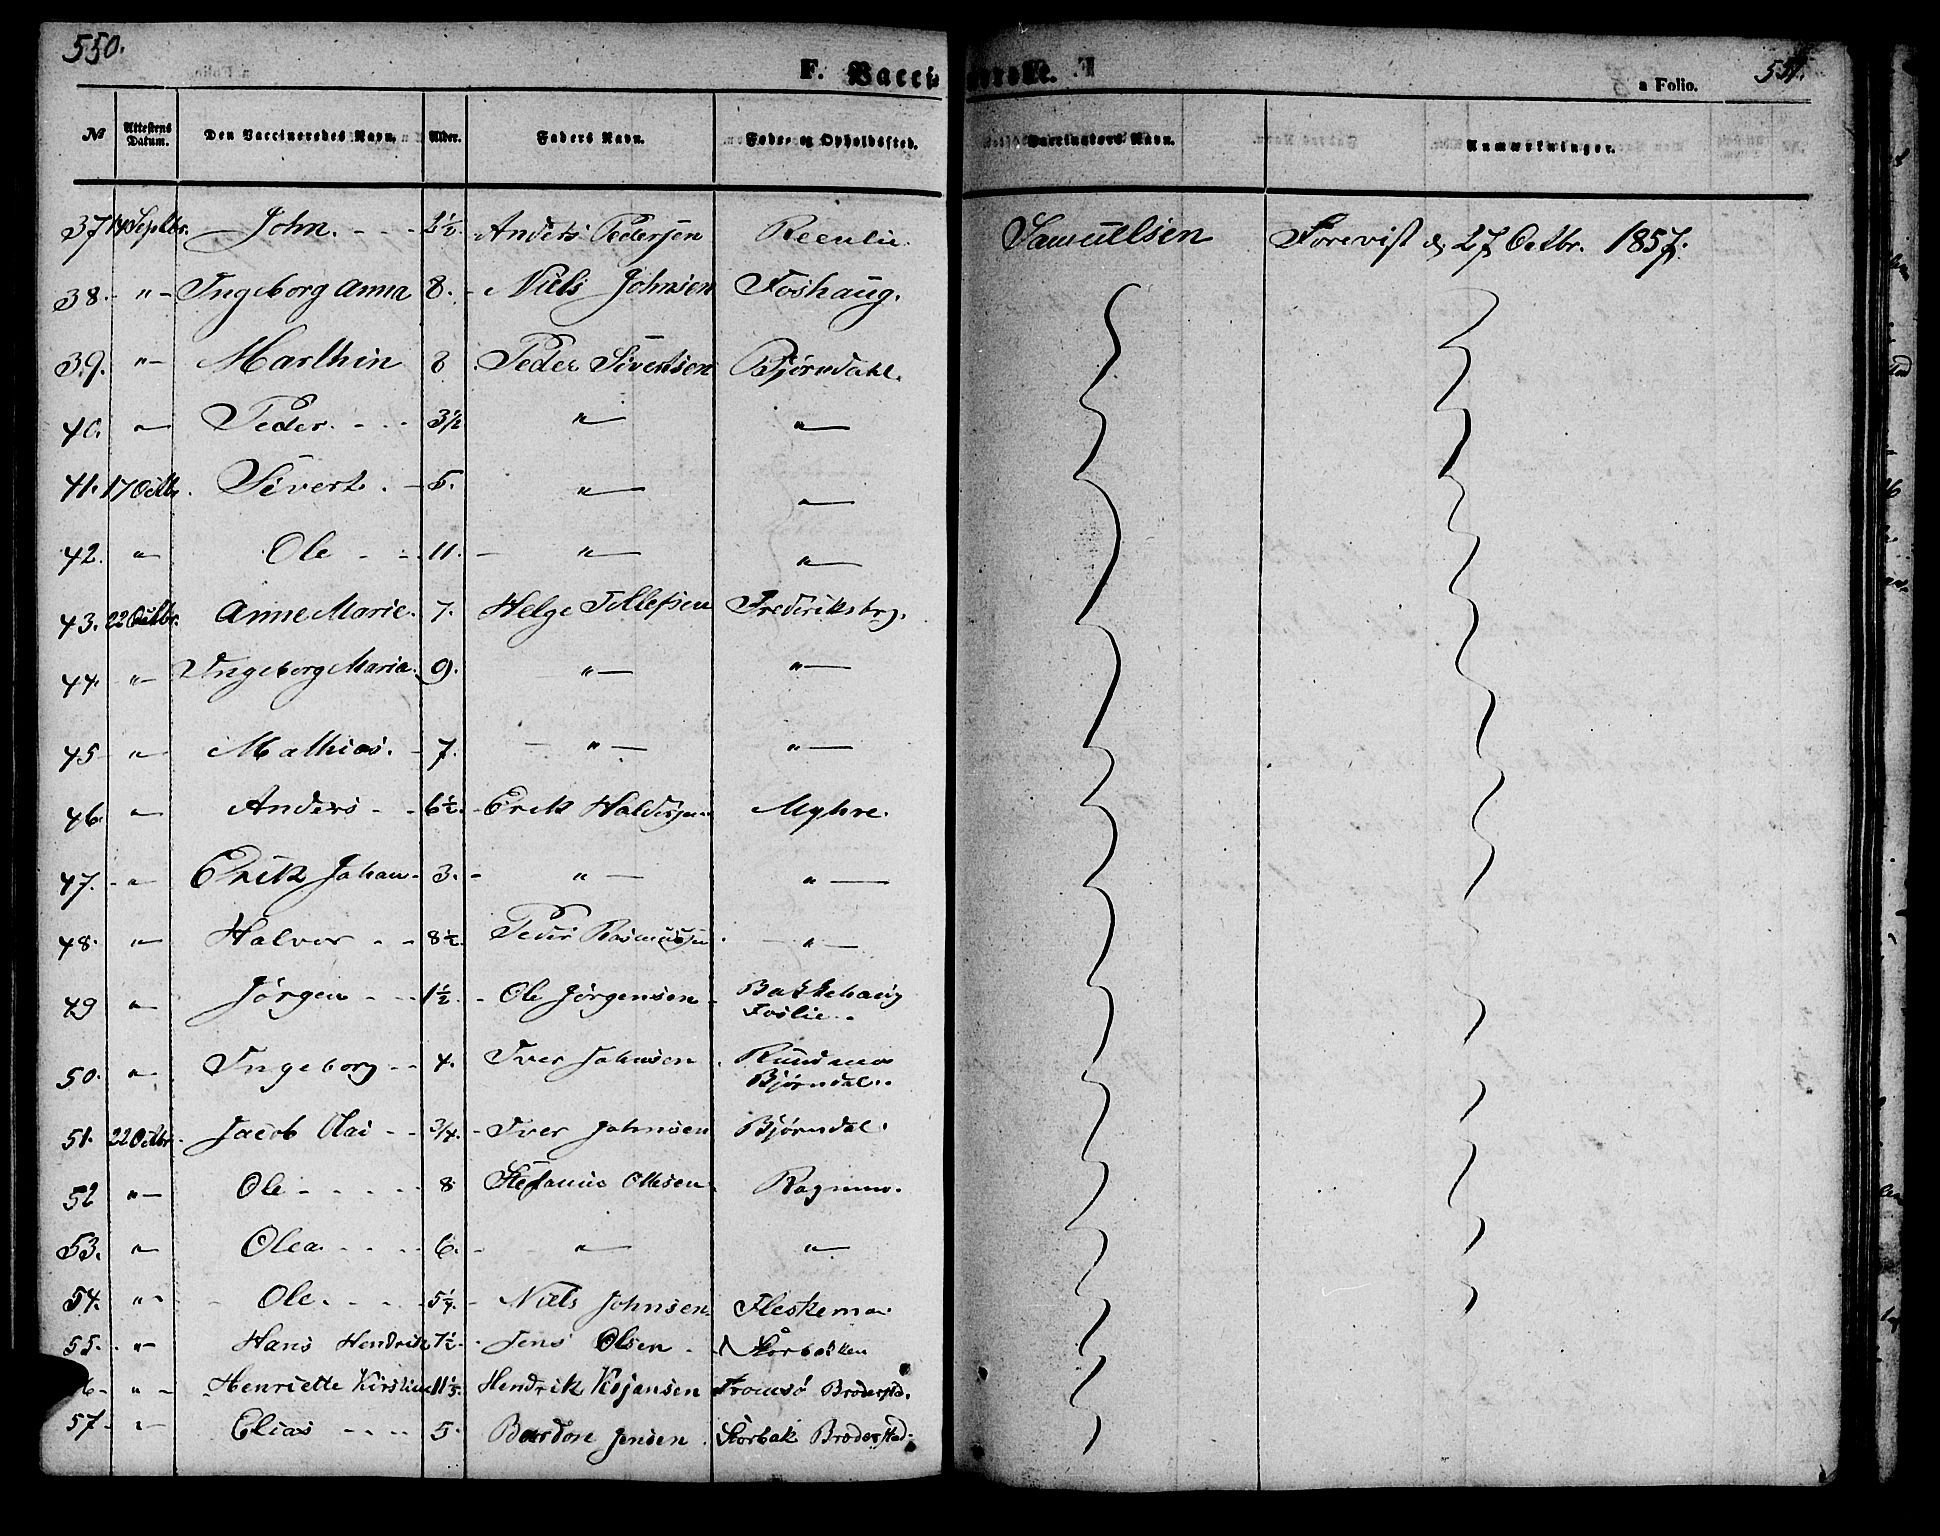 550.
F. Vacci
nerede.
551.
a Folio.
№ Attestens Datum. Den Vaccineredes Navn. Alder. Faders Navn. Føde- og Opholdssted. Vaccinateurs Navn. Anmærkninger.
37 14 Septbr. John. Anders Pedersen Reenlie. Samuelsen Forevist d. 27 Octbr. 1857.
38. - " - Ingeborg Anna 8. - Niels Johnsen Foshaug.
39. " - Marthin 8 Peder Sivertsen Bjørndahl.
40. " - Peder. 3½ " - " -
41. 17 Octbr. Sivert. - 5. " - " -
42. " - Ole - 11. - " - " -
43. 22 Octbr. Anne Marie. 7. Helge Tollefsen Frederiksbrg.
44. " - Ingeborg Maria. 9. " - " -
45 " - Mathias. - 7. - " - " -
46. " - Anders - 6½. - Erik Haldorsen Myhre.
47. - " - Erik Johan - 3. - " - " -
48. " - Halvor - 8½. Peder Rasmussen - " -
49 " - Jørgen - 1½. - Ole Jørgensen Bakkehaug
Foslie.
50. " - Ingeborg - 4. Iver Johnsen Rundmo
Bjørndal.
51. 22 Octbr. Jacob Olai - 3/4. - Iver Johnsen Bjørndal.
52 " - Ole - 8 Stefanus Ottesen Ragnmo.
53. " - Olea. - 6. - " - " -
54. " - Ole. - 5¼. - Niels Johnsen Fleskemo.
55. - " - Hans Hendrik 7½. - Jens Olsen - Storbakken
6 - " - Henriette Kirstine 11½. Hendrik Tromsø Brodersted.
57 - " - Elias - 5. Bardon Jensen. Storbak Brodersted.